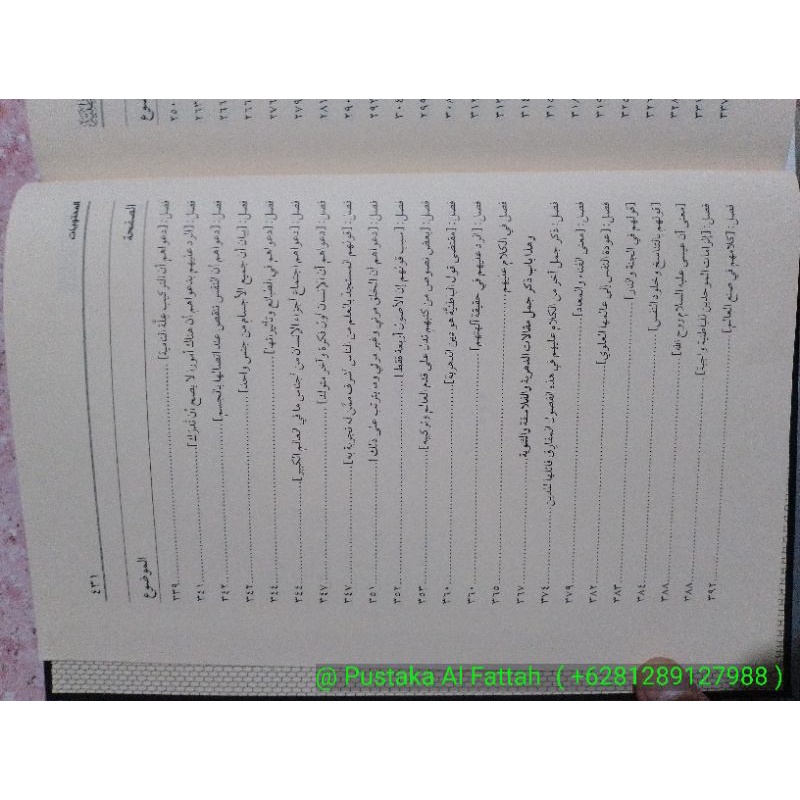 المحتويات ٤٣١
الصفحة الموضوع
فصل: [دعواهم أن التركيب علّة للناميّة] ٣٣٩
فصل: [الرد عليهم بدعواهم أن هناك أمور، لا يصح أن تُدرَك] ٣٤١
فصل: [دعواهم أن النفس تنقص عند اتصالها بالجسم] ٣٤٢
فصل: [بيان أن جميع الأجسام من جنس واحد] ٣٤٢
فصل: [دعواهم في الطبائع وتأثيرتها] ٣٤٤
فصل: [دعواهم اجتماع أجزاء الإنسان من أجناس ما في العالم الكبير] ٣٤٤
فصل: [دعواهم أن الإنسان أول فكرة وآخر متولد] ٣٤٧
فصل: [قولهم المستجد بالعلم من الناس أشرف ممّن له تجربة به] ٣٤٧
فصل: [دعواهم أن الخلق مرئي وغير مرئي وما يترتب على ذلك] ٣٥١
فصل: [سبب قولهم إن الأصول أربعة فقط] ٣٥٢
فصل: [بعض نصوص من كتبهم تدل على قدم العالم وتركيبه] ٣٥٣
فصل: [مقتضى قول الباطنيّة هو عين الدهرية] ٣٦٠
فصل: [الرد عليهم في حقيقة إلههم] ٣٦٠
فصل في الكلام عليهم ٣٦٥
وهذا باب ذكر جمل مقالات الدهرية والفلاسفة والثنوية ٣٦٧
فصل: ذكر جمل أخر من الكلام عليهم في هذه الفصول المفارق قائلها للدين ٣٧٤
فصل: [معنى الفناء والمعاد] ٣٧٩
فصل: [عودة النفس إلى عالمها العلوي] ٣٨٢
[قولهم في الجنة والنار] ٣٨٣
[قولهم بالتناسخ وخلود النفس] ٣٨٤
[معنى أن عيسى عليه السلام روح الله] ٣٨٨
فصل: [إلزامات الموحدين للباطنية واجبة] ٣٨٨
فصل: [كلامهم في صنع العالم] ٣٩٢
@ Pustaka Al Fattah ( +6281289127988 )